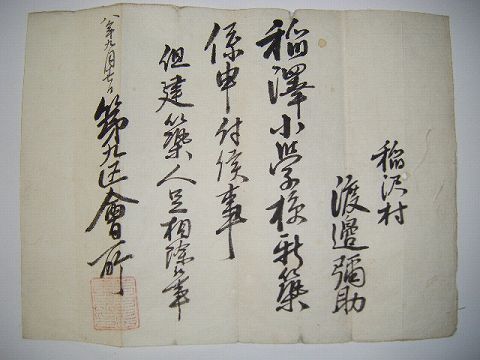 稲沢村
渡邉彌助
稲澤小学校新築
係申付候事
但建築人足相除候事
八年九月七日
第九区會所